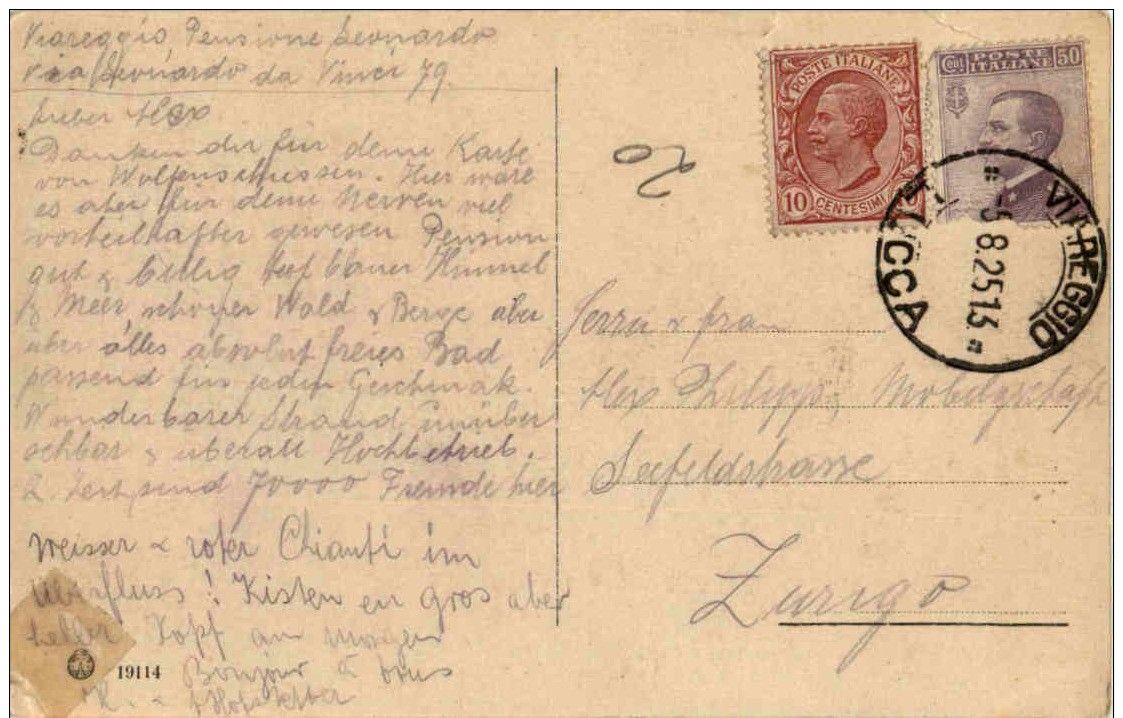 Viareggio, Pensione Leonardo
Via Leonardo da Vinci 79.
Lieber Alex
Danken dir für deine Karte
von Wolfenschiessen. Hier wäre
es aber für deine Nerven viel
vorteilhafter gewesen Pension
gut & billig tief blauer Himmel
& Meer, schöner Wald & Berge aber
über alles absolut freies Bad
passend für jeden Geschmak.
Wunderbarer Strand unüber
sehbar & überall Hochbetrieb.
Z. Zeit sind 70000 Fremde hier
Weisser & roter Chianti im
Überfluss! Kisten en gros aber
heller Kopf am morgen
Bonjour à vous
19114
20
POSTE ITALIANE
10 CENTESIMI 10
Cent. POSTE ITALIANE 50
VIAREGGIO
-5.8.25 13
LUCCA
Herrn & frau
Alex Philipp, Möbelgeschäft
Seefeldstrasse
Zurigo